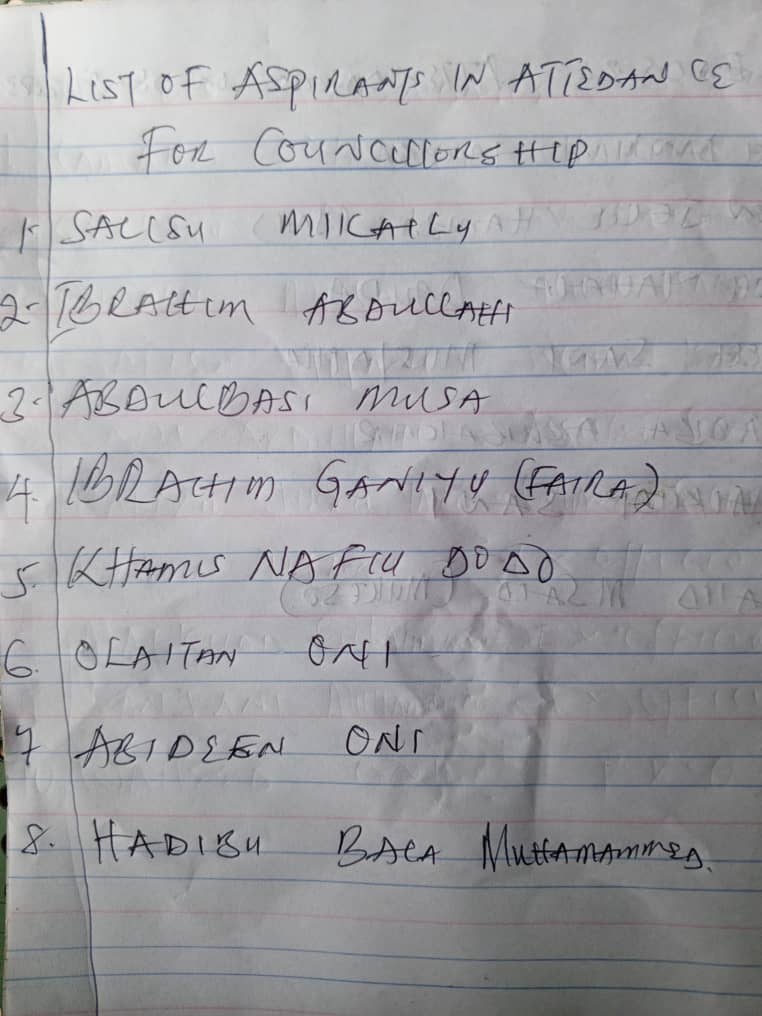 LIST OF ASPIRANTS IN ATTEDANCE
FOR COUNCILLORSHIP
1- SALISU MIIKAILY
2- IBRAHIM ABDULLAHI
3- ABDULBASI MUSA
4. IBRAHIM GANIYU (FAIRA)
5. KHAMIS NAFIU DODO
6. OLAITAN ONI
7 ABIDEEN ONI
8. HADIBU BALA MUHAMAMMED.